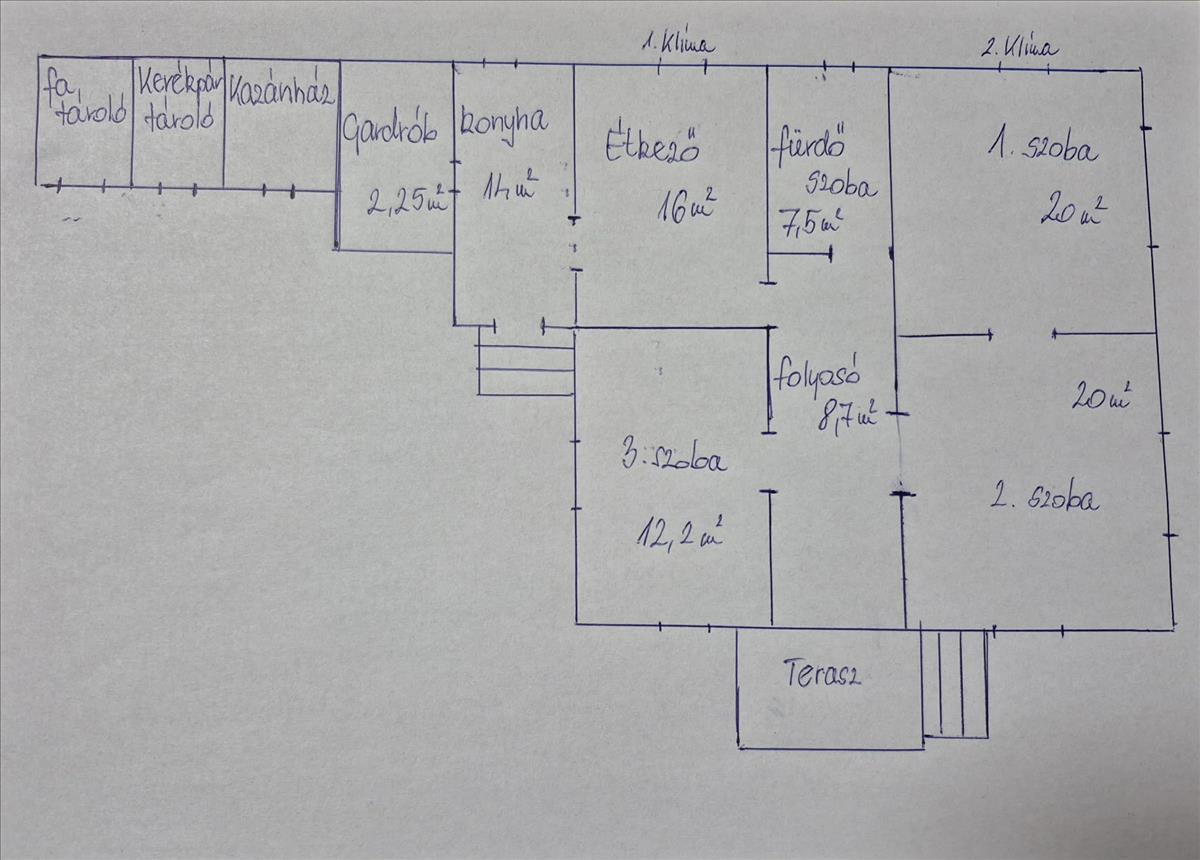 1. Klíma
2. Klíma
fa,
tároló
Kerékpár
tároló
Kazánház
Gardrób
2,25m²
konyha
14m²
Étkező
16m²
fürdő
szoba
7,5m²
1. szoba
20m²
folyosó
8,7m²
20m²
2. szoba
3. szoba
12,2m²
Terasz